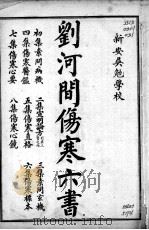 新安吳勉學校
劉河間傷寒十書
初集素問病機
二集宣明論方
三集素問玄機
四集傷寒醫鑑
五集傷寒直格
六集傷寒標本
七集傷寒心要
八集傷寒心鏡